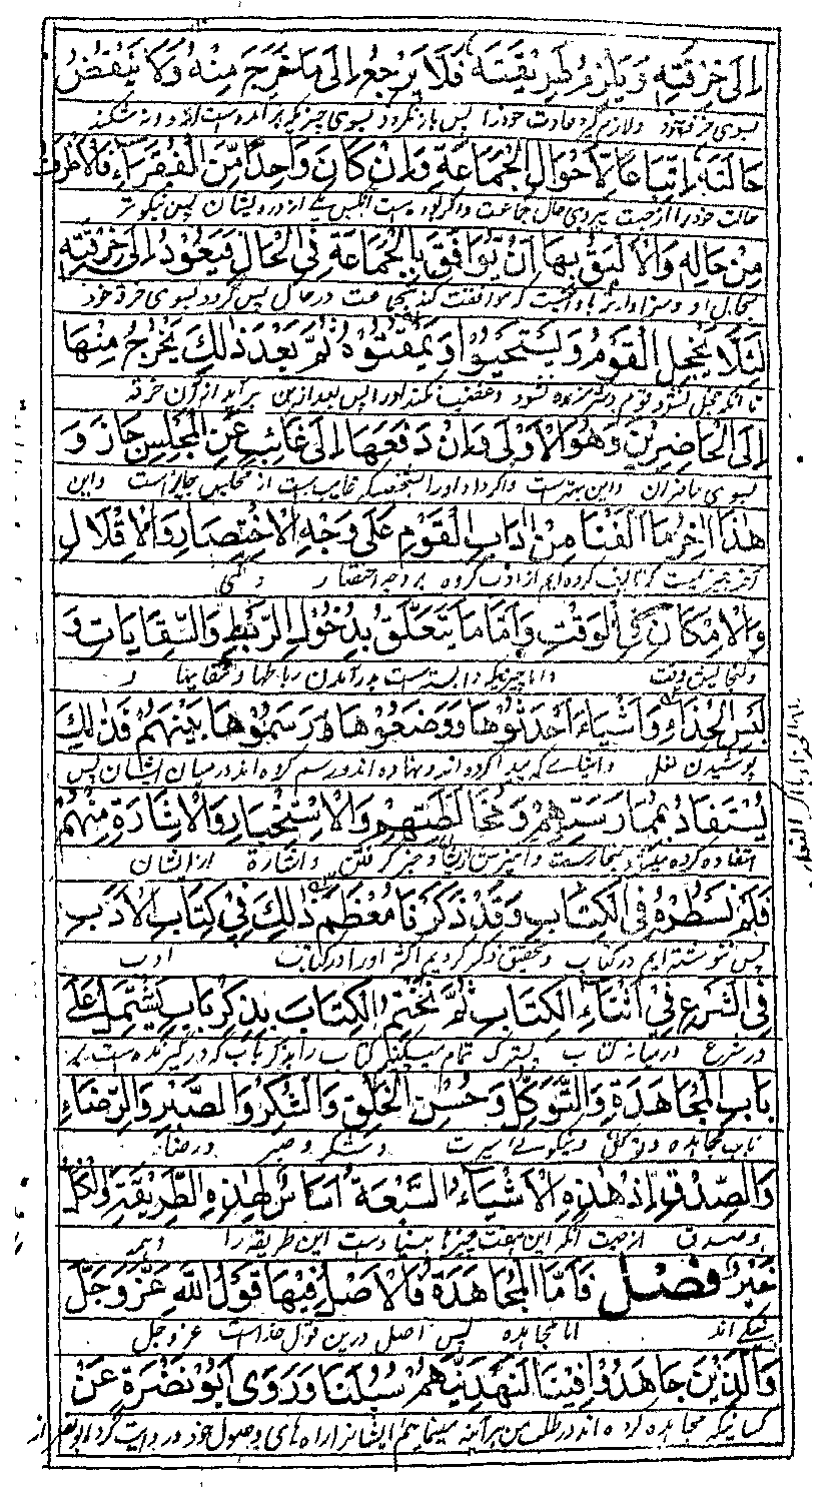 اِلٰى خِرْقَتِهٖ وَيَلْزَمُ طَرِيْقَتَهٗ فَلَا يَرْجِعُ اِلٰى مَا خَرَجَ مِنْهُ وَلَا يَنْقُضُ
بسوی خرقه خود ولازم گیرد عادت خود را پس باز نگردد بسوی چیزیکه برآمده است ازو ونه شکند
حَالَتَهٗ اِتِّبَاعًا لِاَحْوَالِ الْجَمَاعَةِ وَاِنْ كَانَ وَاحِدًا مِّنَ الْفُقَرَاءِ فَالْاَحْرٰى
حالت خود را از جهت پیروی حال جماعت واگر بوده است آنکس یکے از درویشان پس نیکوتر
مِنْ حَالِهٖ وَالْاَلْيَقُ بِهَا اَنْ يُّوَافِقَ بِالْجَمَاعَةِ فِي الْحَالِ فَيَعُوْدُ اِلٰى خِرْقَتِهٖ
بحال او وسزاوارتر باو آنست که موافقت کند بجماعت در حال پس گردد بسوی خرقه خود
لِئَلَّا يَخْجَلَ الْقَوْمُ وَيَسْتَحْيُوْا وَيَمْقُتُوْهُ ثُمَّ بَعْدَ ذٰلِكَ يَخْرُجُ مِنْهَا
تا آنکه خجل نشود قوم وشرمنده نشود وغضب نکند اورا پس بعد ازین برآید ازان خرقه
اِلَى الْحَاضِرِيْنَ وَهُوَ الْاَوْلٰى وَاِنْ دَفَعَهَا اِلٰى غَائِبٍ عَنِ الْمَجْلِسِ جَازَ وَ
بسوی حاضران واین بهتر است واگر داد اورا بشخصیکه غایب است از مجلس جایز است واین
هٰذَا اٰخِرُ مَا اَلَّفْنَا مِنْ اٰدَابِ الْقَوْمِ عَلٰى وَجْهِ الْاِخْتِصَارِ وَالْاِقْلَالِ
آخر چیزیست که تالیف کرده ایم از ادب گروه بر وجه اختصار وکمی
وَالْاِمْكَانِ فِي الْوَقْتِ وَاَمَّا مَا يَتَعَلَّقُ بِدُخُوْلِ الرُّبُطِ وَالسِّقَايَاتِ وَ
وگنجایش وقت واما چیزیکه وابسته است بدرآمدن رباطها وسقایها و
لُبْسِ الْحِذَاءِ وَاَشْيَاءَ اَحْدَثُوْهَا وَوَضَعُوْهَا وَرَسَمُوْهَا بَيْنَهُمْ فَذٰلِكَ
پوشیدن نعل واشیائے که پیدا کرده اند ونهاده اند ورسم کرده اند درمیان ایشان پس
يُسْتَفَادُ بِمُمَارَسَتِهِمْ وَمُخَالَطَتِهِمْ وَالْاِسْتِخْبَارِ وَالْاِشَارَةِ مِنْهُمْ
استفاده کرده میشود بممارست وآمیزش ازیشان وخبر گرفتن واشارة از ایشان
فَلَمْ نَسْطُرْهُ فِي الْكِتَابِ وَقَدْ ذَكَرْنَا مُعْظَمَ ذٰلِكَ فِيْ كِتَابِ الْاَدَبِ
پس ننوشته ایم در کتاب وتحقیق ذکر کردیم اکثر اورا در کتاب ادب
فِي الشَّرْعِ فِيْ اَثْنَاءِ الْكِتَابِ ثُمَّ نَخْتِمُ الْكِتَابَ بِذِكْرِ بَابٍ يَشْتَمِلُ عَلٰى
در شرع درمیانه کتاب پستر تمام میکنیم کتاب را بذکر باب که در گیرنده است بر
بَابِ الْمُجَاهَدَةِ وَالتَّوَكُّلِ وَحُسْنِ الْخُلْقِ وَالشُّكْرِ وَالصَّبْرِ وَالرِّضَاءِ
باب مجاهده وتوکل ونیکوئے سیرت وشکر وصبر ورضا
وَالصِّدْقِ اِذْ هٰذِهِ الْاَشْيَاءُ السَّبْعَةُ اَسَاسٌ لِهٰذِهِ الطَّرِيْقَةِ وَالْكُلُّ
وصدق از جهت آنکه این هفت چیزها بنیاد است این طریقه را وهمه
خَيْرٌ فَصْلٌ فَاَمَّا الْمُجَاهَدَةُ فَالْاَصْلُ فِيْهَا قَوْلُ اللّٰهِ عَزَّ وَجَلَّ
نیک اند اما مجاهده پس اصل درین قول خداست عزوجل
وَالَّذِيْنَ جَاهَدُوْا فِيْنَا لَنَهْدِيَنَّهُمْ سُبُلَنَا وَرَوٰى اَبُوْ نَضْرَةَ عَنْ
کسانیکه مجاهده کرده اند در طلب من هر آئینه مینمایم ایشانرا راه های وصول خود وروایت کرد ابو نضره از